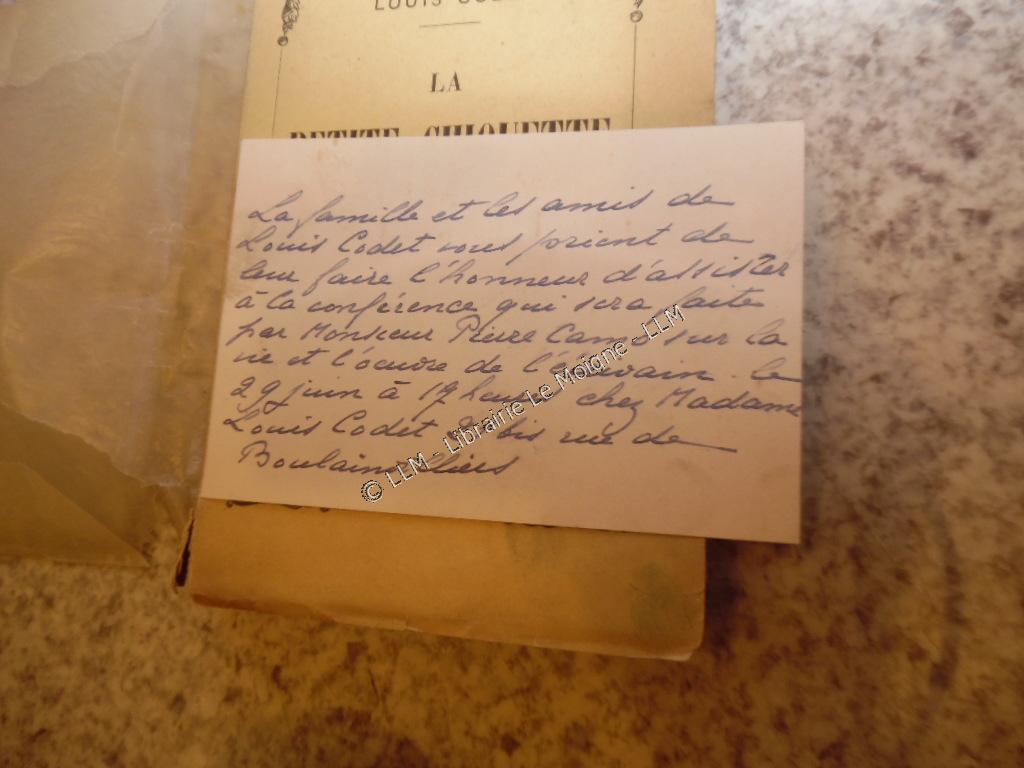 LOUIS
LA
PETITE CHIQUETTE
La famille et les amis de
Louis Codet vous prient de
leur faire l'honneur d'assister
à la conférence qui sera faite
par Monsieur Pierre sur la
vie et l'oeuvre de l'écrivain le
29 juin à 17 heures chez Madame
Louis Codet bis rue de
Boulainvilliers
© LLM - Librairie Le Moigne - LLM